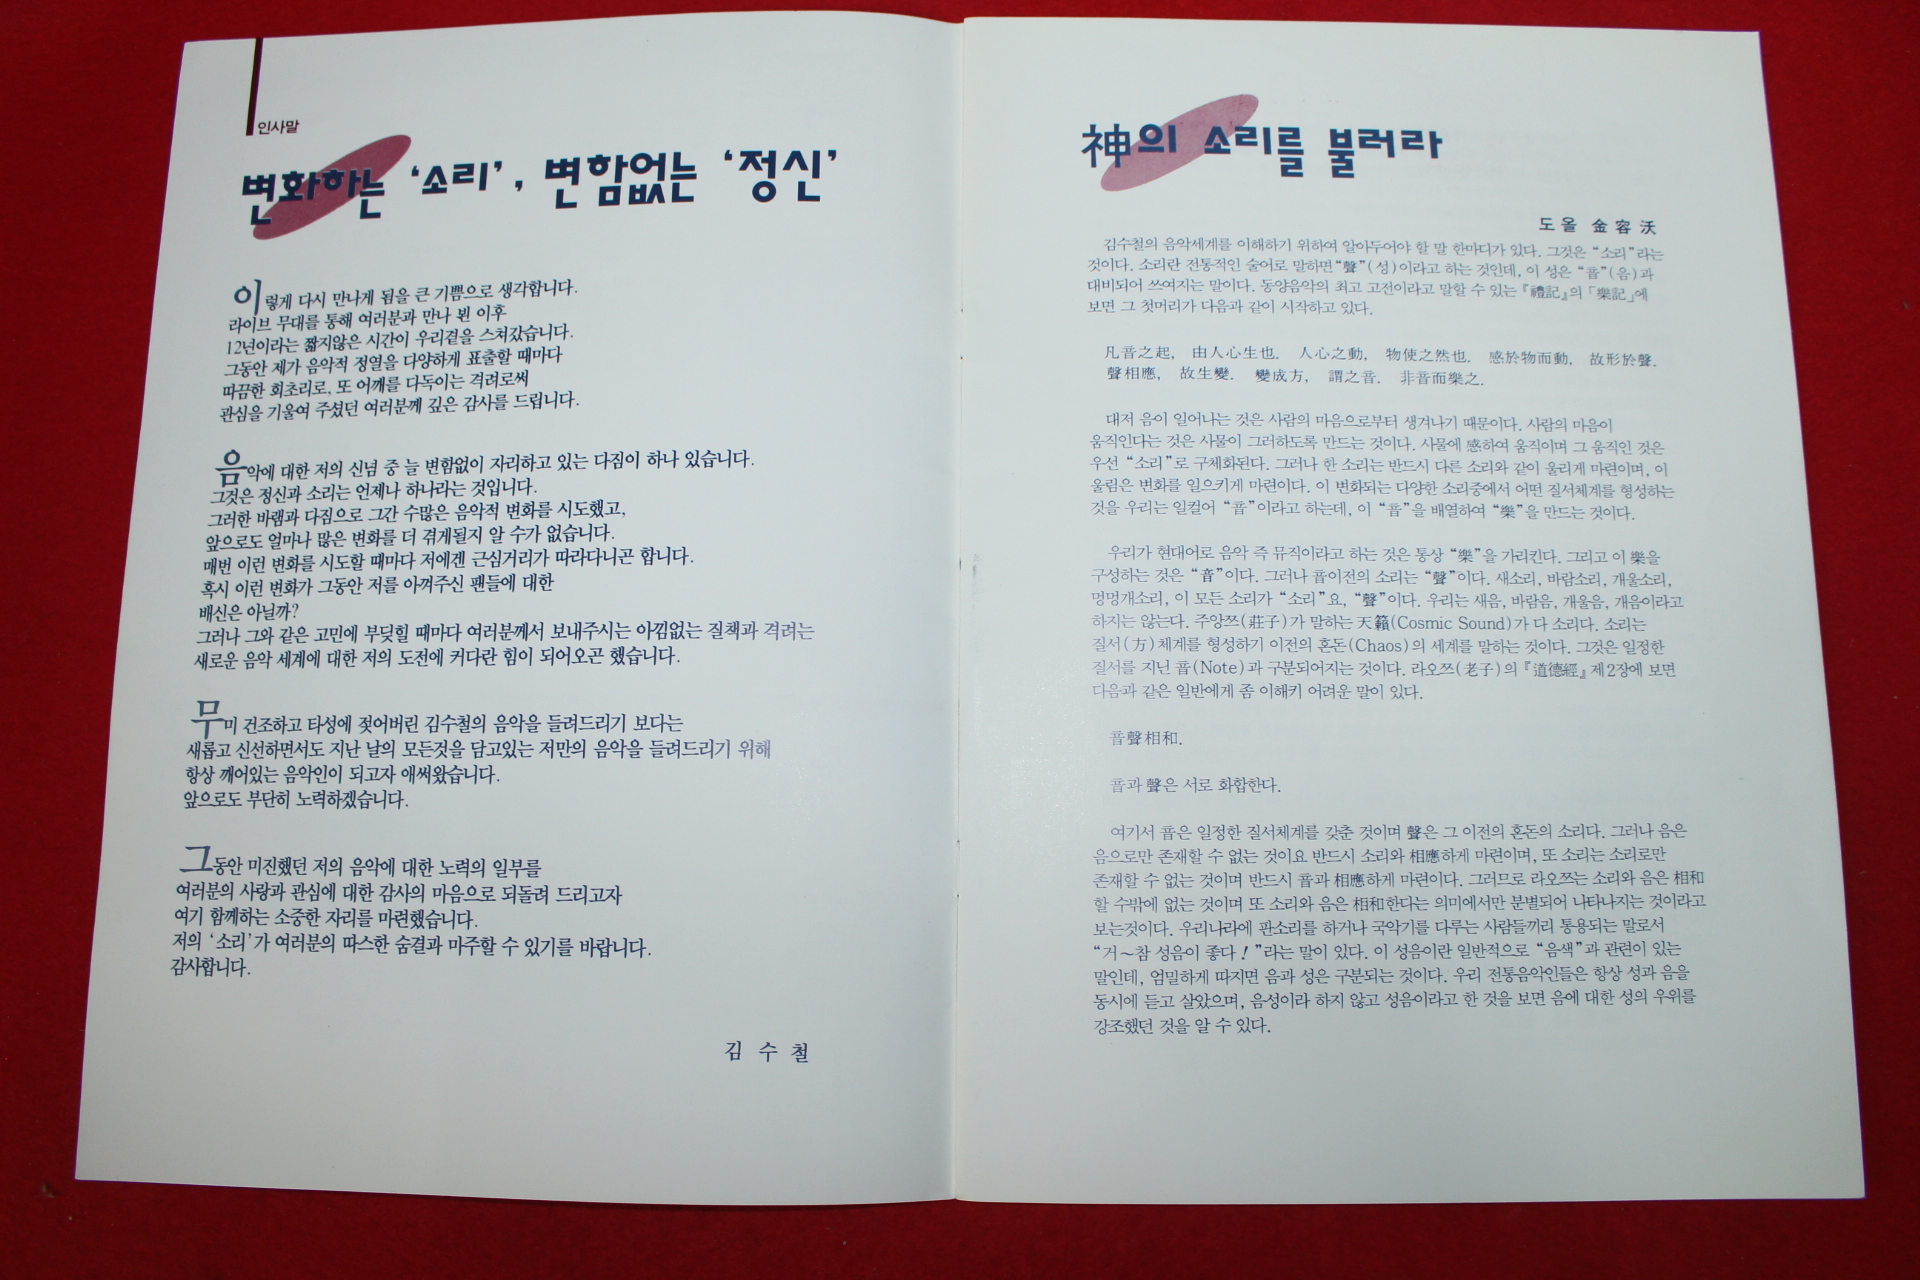 인사말
변화하는 ‘소리’, 변함없는 ‘정신’
이렇게 다시 만나게 됨을 큰 기쁨으로 생각합니다.
라이브 무대를 통해 여러분과 만나 뵌 이후
12년이라는 짧지않은 시간이 우리곁을 스쳐갔습니다.
그동안 제가 음악적 정열을 다양하게 표출할 때마다
따끔한 회초리로, 또 어깨를 다독이는 격려로써
관심을 기울여 주셨던 여러분께 깊은 감사를 드립니다.
음악에 대한 저의 신념 중 늘 변함없이 자리하고 있는 다짐이 하나 있습니다.
그것은 정신과 소리는 언제나 하나라는 것입니다.
그러한 바램과 다짐으로 그간 수많은 음악적 변화를 시도했고,
앞으로도 얼마나 많은 변화를 더 겪게될지 알 수가 없습니다.
매번 이런 변화를 시도할 때마다 저에겐 근심거리가 따라다니곤 합니다.
혹시 이런 변화가 그동안 저를 아껴주신 팬들에 대한
배신은 아닐까?
그러나 그와 같은 고민에 부딪힐 때마다 여러분께서 보내주시는 아낌없는 질책과 격려는
새로운 음악 세계에 대한 저의 도전에 커다란 힘이 되어오곤 했습니다.
무미 건조하고 타성에 젖어버린 김수철의 음악을 들려드리기 보다는
새롭고 신선하면서도 지난 날의 모든것을 담고있는 저만의 음악을 들려드리기 위해
항상 깨어있는 음악인이 되고자 애써왔습니다.
앞으로도 부단히 노력하겠습니다.
그동안 미진했던 저의 음악에 대한 노력의 일부를
여러분의 사랑과 관심에 대한 감사의 마음으로 되돌려 드리고자
여기 함께하는 소중한 자리를 마련했습니다.
저의 ‘소리’가 여러분의 따스한 숨결과 마주할 수 있기를 바랍니다.
감사합니다.
김 수 철
神의 소리를 불러라
도올 金容沃
김수철의 음악세계를 이해하기 위하여 알아두어야 할 말 한마디가 있다. 그것은 “소리”라는
것이다. 소리란 전통적인 술어로 말하면 “聲”(성)이라고 하는 것인데, 이 성은 “音”(음)과
대비되어 쓰여지는 말이다. 동양음악의 최고 고전이라고 말할 수 있는 『禮記』의 「樂記」에
보면 그 첫머리가 다음과 같이 시작하고 있다.
凡音之起, 由人心生也. 人心之動, 物使之然也. 感於物而動, 故形於聲.
聲相應, 故生變. 變成方, 謂之音. 非音而樂之.
대저 음이 일어나는 것은 사람의 마음으로부터 생겨나기 때문이다. 사람의 마음이
움직인다는 것은 사물이 그러하도록 만드는 것이다. 사물에 感하여 움직이며 그 움직인 것은
우선 “소리”로 구체화된다. 그러나 한 소리는 반드시 다른 소리와 같이 울리게 마련이며, 이
울림은 변화를 일으키게 마련이다. 이 변화되는 다양한 소리중에서 어떤 질서체계를 형성하는
것을 우리는 일컬어 “音”이라고 하는데, 이 “音”을 배열하여 “樂”을 만드는 것이다.
우리가 현대어로 음악 즉 뮤직이라고 하는 것은 통상 “樂”을 가리킨다. 그리고 이 樂을
구성하는 것은 “音”이다. 그러나 音이전의 소리는 “聲”이다. 새소리, 바람소리, 개울소리,
멍멍개소리, 이 모든 소리가 “소리”요, “聲”이다. 우리는 새음, 바람음, 개울음, 개음이라고
하지는 않는다. 주앙쯔(莊子)가 말하는 天籟(Cosmic Sound)가 다 소리다. 소리는
질서(方)체계를 형성하기 이전의 혼돈(Chaos)의 세계를 말하는 것이다. 그것은 일정한
질서를 지닌 音(Note)과 구분되어지는 것이다. 라오쯔(老子)의 『道德經』 제2장에 보면
다음과 같은 일반에게 좀 이해키 어려운 말이 있다.
音聲相和.
音과 聲은 서로 화합한다.
여기서 音은 일정한 질서체계를 갖춘 것이며 聲은 그 이전의 혼돈의 소리다. 그러나 음은
음으로만 존재할 수 없는 것이요 반드시 소리와 相應하게 마련이며, 또 소리는 소리로만
존재할 수 없는 것이며 반드시 音과 相應하게 마련이다. 그러므로 라오쯔는 소리와 음은 相和
할 수밖에 없는 것이며 또 소리와 음은 相和한다는 의미에서만 분별되어 나타나지는 것이라고
보는것이다. 우리나라에 판소리를 하거나 국악기를 다루는 사람들끼리 통용되는 말로서
“거～참 성음이 좋다!”라는 말이 있다. 이 성음이란 일반적으로 “음색”과 관련이 있는
말인데, 엄밀하게 따지면 음과 성은 구분되는 것이다. 우리 전통음악인들은 항상 성과 음을
동시에 듣고 살았으며, 음성이라 하지 않고 성음이라고 한 것을 보면 음에 대한 성의 우위를
강조했던 것을 알 수 있다.